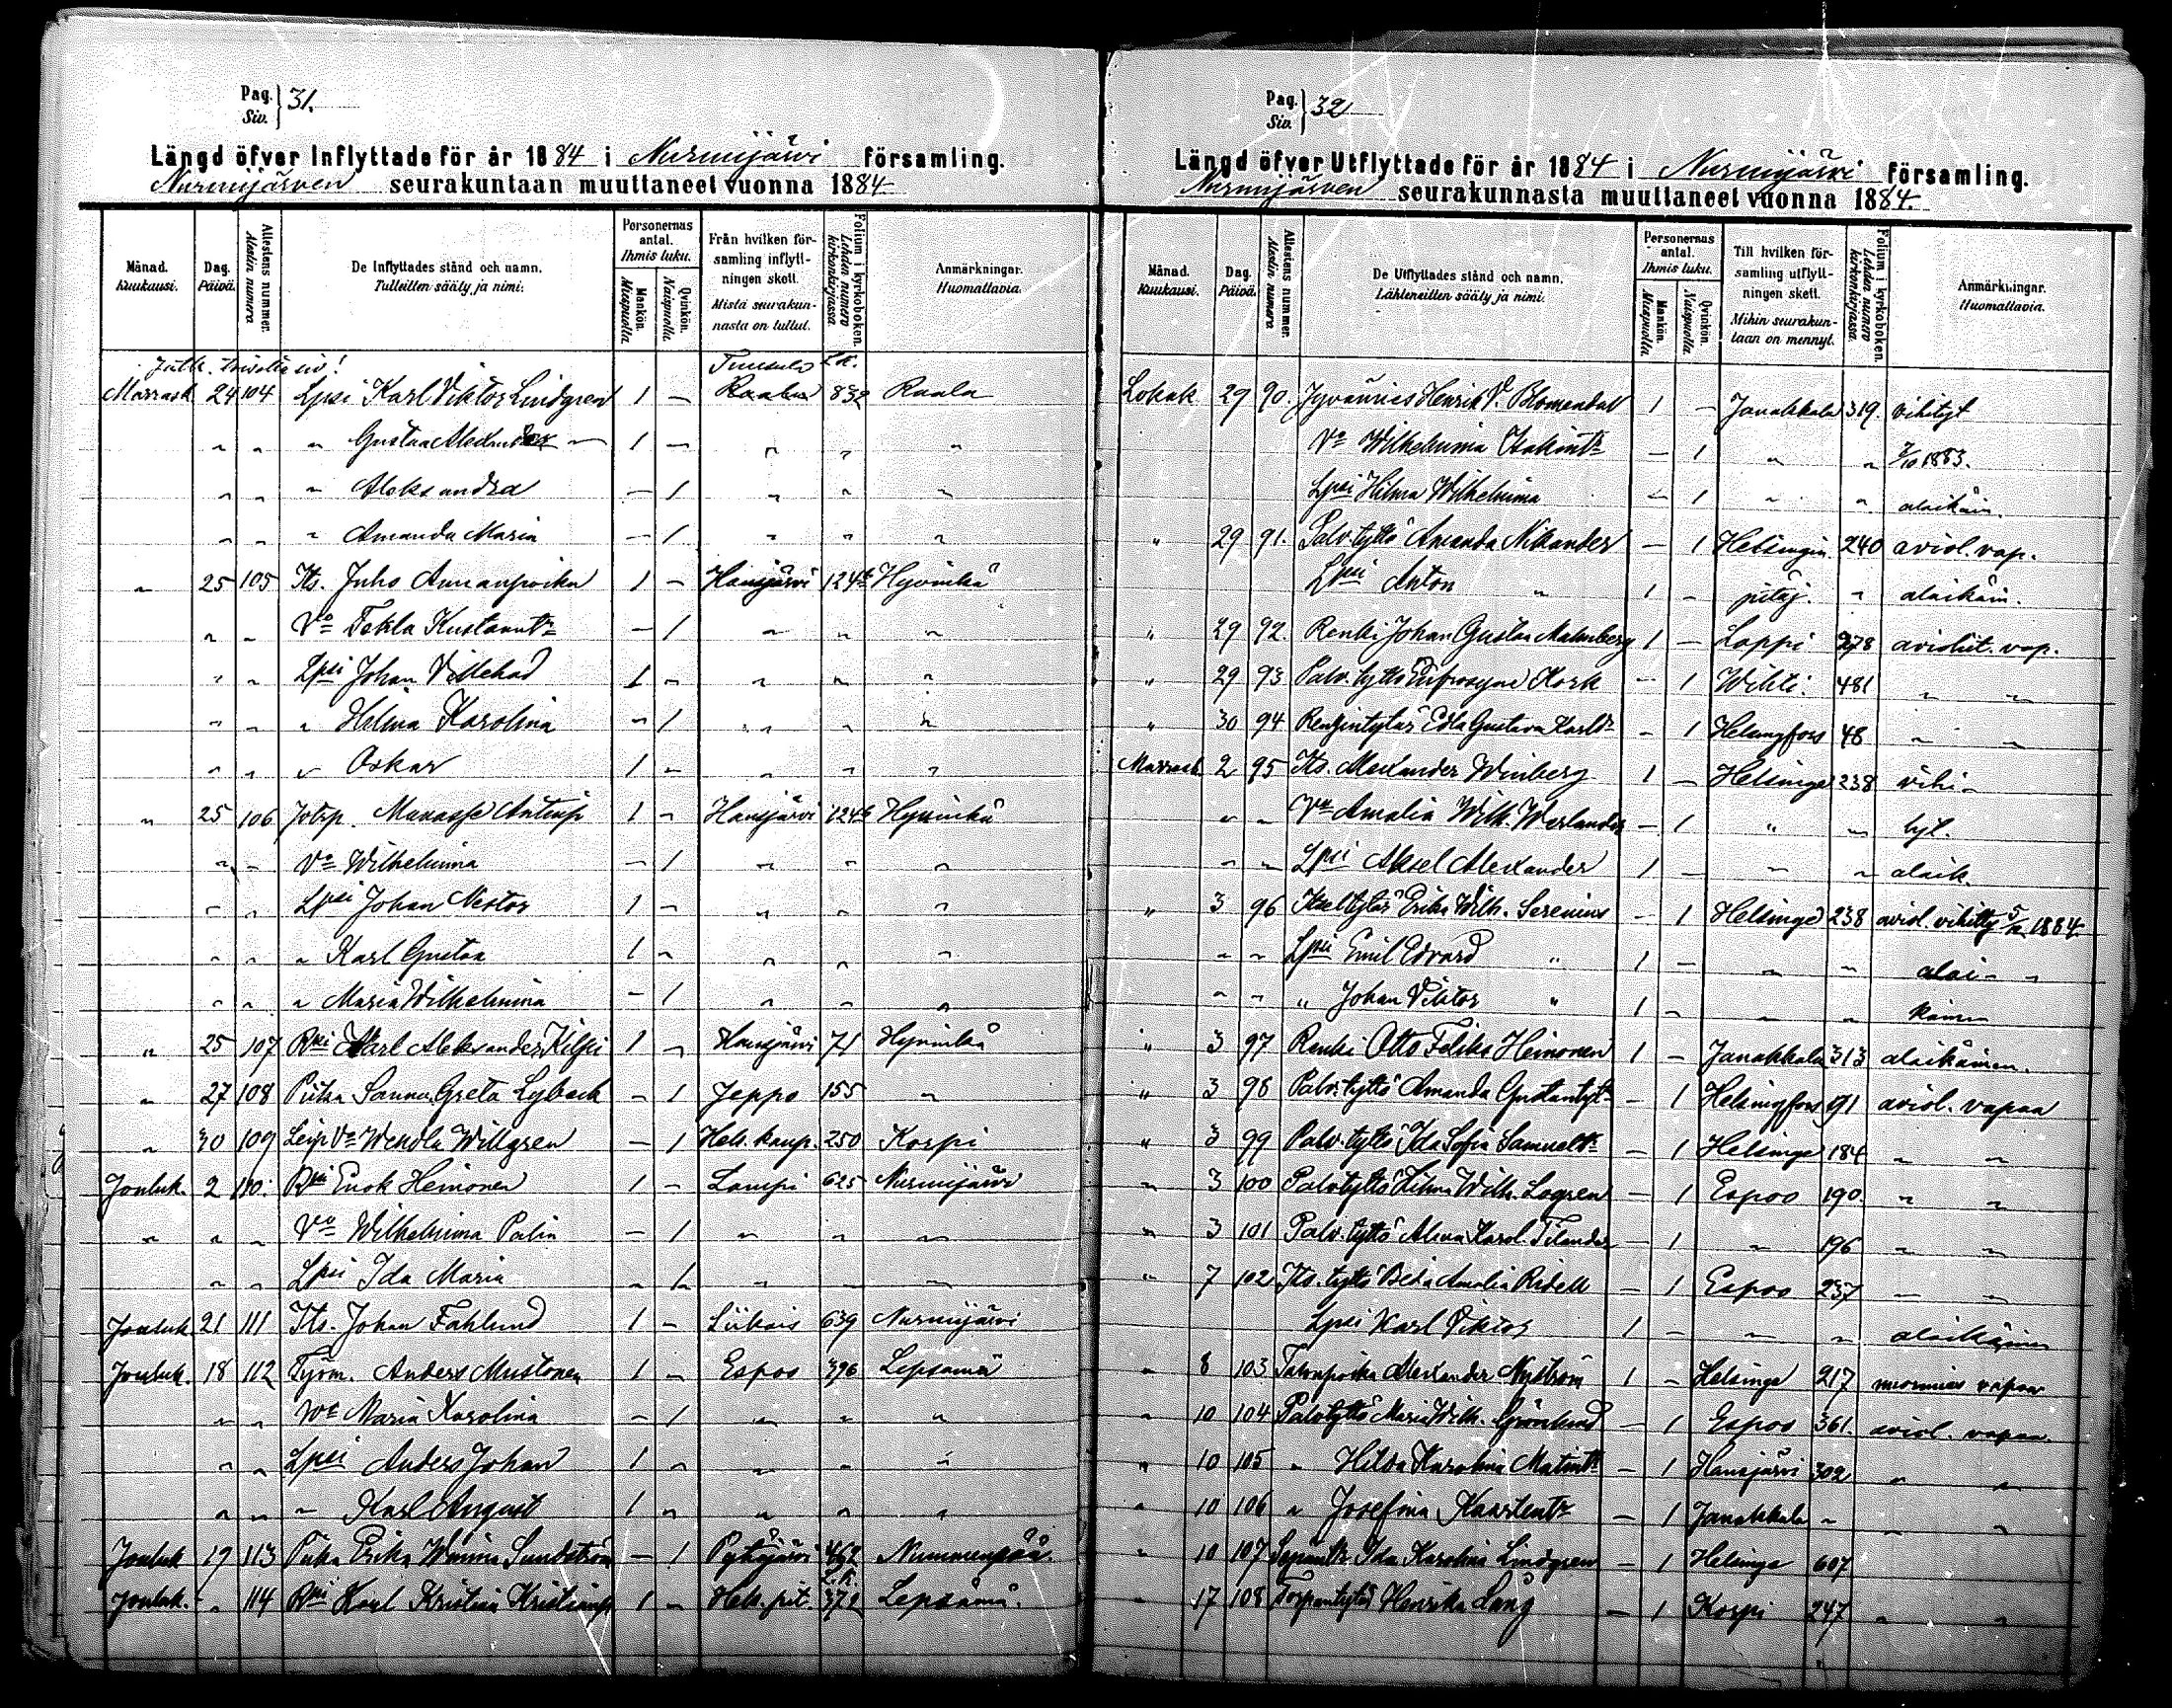 Pag. Siv. } 31.
Längd öfver Inflyttade för år 1884 i Nurmijärvi församling.
Nurmijärven seurakuntaan muuttaneet vuonna 1884
Månad. Kuukausi. Dag. Päivä. Attestens nummer. Atestin numero De Inflyttades stånd och namn. Tulleitten sääty ja nimi. Personernas antal. Ihmis luku. Mankön. Miespuolia Qvinkön. Naispuolia Från hvilken församling inflyttningen skett. Mistä seurakunnasta on tullut. Folium i kyrkoboken. Lehden numero kirkonkirjassa. Anmärkningar. Huomattavia.
siv! Tuusula L.K.
Marrask 24 104 Lpsi Karl Viktor Lindgren 1 - 832 Raala
" " " Gustaa Alexander — 1 - " " "
" " " Aleksandra - 1 " " "
" " " Amanda Maria - 1 " " "
" 25 105 Its. Juho Antinpoika 1 - Hausjärvi 124 Hyvinkä
" " Vo Tekla Kustaant. - 1 " " "
" " Lpsi Johan Villehad 1 - " " "
" " " Hilma Karolina - 1 " " "
" " " Oskar 1 - " " "
" 25 106 Manasse Antinp 1 - Hausjärvi 124 Hyvinkä
" " Vo Wilhelmina - 1 " " "
" " Lpsi Johan Nestor 1 - " " "
" " " Karl Gustaa 1 - " " "
" " " Maria Wilhelmina - 1 " " "
" 25 107 Rki Karl Aleksander Kilpi 1 - Hausjärvi 71 Hyvinkä
" 27 108 Piika Sanna Greta Lyback - 1 Jeppo 155 "
" 30 109 Vo Wendla Willgren - 1 Hels. kaup. 250 Korpi
Jouluk. 2 110. Rki Enok Heinonen 1 - Lampi 625 Nurmijärvi
" " " Vo Wilhelmina Palin - 1 " " "
" " Lpsi Ida Maria - 1 " " "
Jouluk 21 111 Its. Johan Fahlund 1 - 639 Nurmijärvi
Jouluk. 18 112 Työm. Anders Mustonen 1 - Espoo 396 Lepsämä
" " Vo Maria Karolina - 1 " " "
" " Lpsi Anders Johan 1 - " " "
" " " Karl August 1 - " " "
Jouluk 19 113 Piika Erika Wanna Sundström - 1 Pyhäjärvi 462 Nummenpää
Jouluk. " 114 Rki Karl Kristian Kristianp 1 - Hels. pit. L.K. 372 Lepsämä.
Pag. Siv. } 32
Längd öfver Utflyttade för år 1884 i Nurmijärvi församling.
Nurmijärven seurakunnasta muuttaneet vuonna 1884.
Månad. Kuukausi. Dag. Päivä. Attestens nummer. Atestin numero De Utflyttades stånd och namn. Lähteneitten sääty ja nimi. Personernas antal. Ihmis luku. Mankön. Miespuolia Qvinkön. Naispuolia Till hvilken församling utflyttningen skett. Mihin seurakuntaan on mennyt. Folium i kyrkoboken. Lehden numero kirkonkirjassa. Anmärkningar. Huomattavia.
Lokak 29 90. Henrik V. Blomendal 1 - Janakkala 319. vihityt
Vo Wilhelmina Isakint. - 1 " " 1883.
Lpsi Hilma Wilhelmina - 1 " " alaikäin.
" 29 91. Palv. tyttö Amanda Nikander - 1 Helsingin 240 aviol. vap.
Lpsi Anton " 1 - pitäj. " alaikäin.
" 29 92. Renki Johan Gustav Malmberg 1 - Loppi 278 vap.
" 29 93 Palv. tyttö Eufrosyne Kork - 1 Wihti. 481 " "
" 30 94 Rengintytär Edla Gustava Karlt. - 1 Helsingfors 48 " "
Marrask 2 95 Its. Alexander Winberg 1 - Helsinge 238 vihi-
" " Vo Amalia Wilh. Werlander - 1 " " tyt.
" " Lpsi Aksel Alexander 1 - " " alaik.
" 3 96 Itsel. tytär Erika Wilh. Serenius - 1 Helsinge 238 aviol. vihitty 1884.
" " Lpsi Emil Edvard " 1 - " " alai-
" " " Johan Viktor " 1 - " " käinen
" 3 97 Renki Otto Feliks Heinonen 1 - Janakkala 313 alaikäinen.
" 3 98 Palv. tyttö Amanda Gustavtyt. - 1 Helsingfors 91 aviol. vapaa
" 3 99 Palv. tyttö Ida Sofia Samuelt. - 1 Helsinge 184 " "
" 3 100 Palv. tyttö Wilh. Lagren - 1 Espoo 190. " "
" 3 101 Palv. tyttö Alma Karol. Tilander - 1 " 196 " "
" 7 102 Its. tyttö Beda Amalia Ridell - 1 Espoo 237 " "
Lpsi Karl Viktor 1 - " " alaikäinen
" 8 103 Talonpoika Alexander Nyström 1 - Helsinge 217 vapaa
" 10 104 Palv. tyttö Maria Wilh. Grönlund - 1 Espoo 361. aviol. vapaa.
" 10 105 " Hilda Karolina Matint. - 1 Hausjärvi 302 " "
" 10 106 " Josefina Kaarlent. - 1 Janakkala " " "
" 10 107 Ida Karolina Lindgren - 1 Helsinge 607
" 17 108 Torpantytär Henrika Lång - 1 Korpi 247 " "